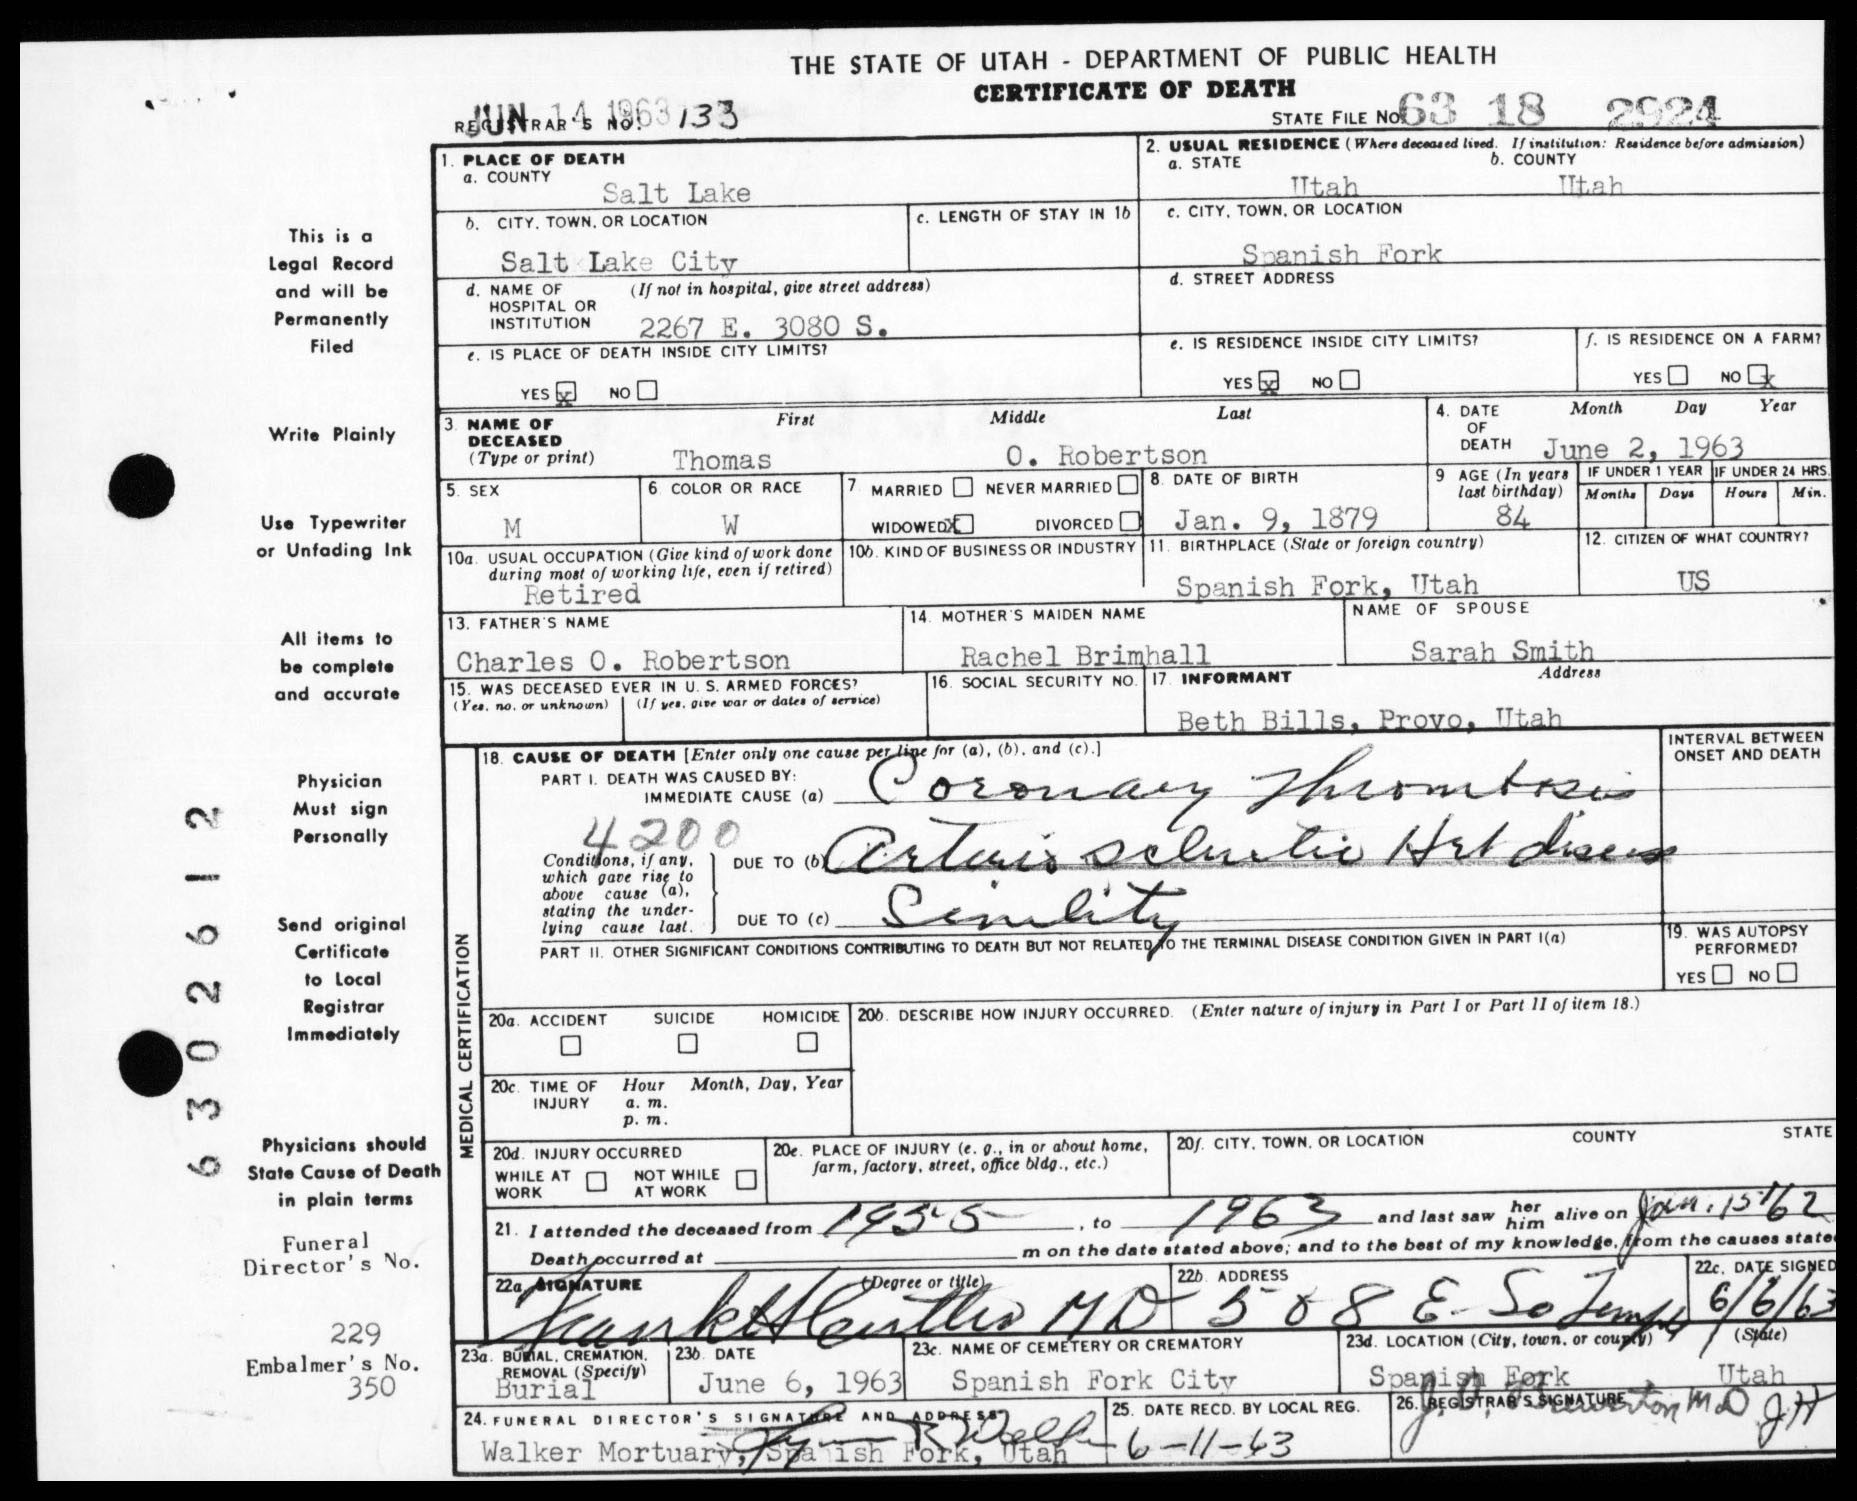 THE STATE OF UTAH - DEPARTMENT OF PUBLIC HEALTH
CERTIFICATE OF DEATH
JUN 14 1963
REGISTRAR'S NO. 133
STATE FILE NO. 63 18 2924
1. PLACE OF DEATH
a. COUNTY
Salt Lake
2. USUAL RESIDENCE (Where deceased lived. If institution: Residence before admission)
a. STATE b. COUNTY
Utah Utah
b. CITY, TOWN, OR LOCATION
Salt Lake City
c. LENGTH OF STAY IN 1b
c. CITY, TOWN, OR LOCATION
Spanish Fork
d. NAME OF HOSPITAL OR INSTITUTION (If not in hospital, give street address)
2267 E. 3080 S.
d. STREET ADDRESS
e. IS PLACE OF DEATH INSIDE CITY LIMITS?
YES x NO
e. IS RESIDENCE INSIDE CITY LIMITS?
YES x NO
f. IS RESIDENCE ON A FARM?
YES NO x
3. NAME OF DECEASED (Type or print)
First Middle Last
Thomas O. Robertson
4. DATE OF DEATH
Month Day Year
June 2, 1963
5. SEX
M
6. COLOR OR RACE
W
7. MARRIED NEVER MARRIED
WIDOWED X DIVORCED
8. DATE OF BIRTH
Jan. 9, 1879
9 AGE (In years last birthday)
84
IF UNDER 1 YEAR
Months Days
IF UNDER 24 HRS.
Hours Min.
10a. USUAL OCCUPATION (Give kind of work done during most of working life, even if retired)
Retired
10b. KIND OF BUSINESS OR INDUSTRY
11. BIRTHPLACE (State or foreign country)
Spanish Fork, Utah
12. CITIZEN OF WHAT COUNTRY?
US
13. FATHER'S NAME
Charles O. Robertson
14. MOTHER'S MAIDEN NAME
Rachel Brimhall
NAME OF SPOUSE
Sarah Smith
15. WAS DECEASED EVER IN U. S. ARMED FORCES?
(Yes, no, or unknown) (If yes, give war or dates of service)
16. SOCIAL SECURITY NO.
17. INFORMANT Address
Beth Bills, Provo, Utah
MEDICAL CERTIFICATION
18. CAUSE OF DEATH [Enter only one cause per line for (a), (b), and (c).]
PART I. DEATH WAS CAUSED BY:
IMMEDIATE CAUSE (a) Coronary Thrombosis
4200
Conditions, if any, which gave rise to above cause (a), stating the underlying cause last.
DUE TO (b) Arterio sclerotic Hrt disease
DUE TO (c) Senility
INTERVAL BETWEEN ONSET AND DEATH
PART II. OTHER SIGNIFICANT CONDITIONS CONTRIBUTING TO DEATH BUT NOT RELATED TO THE TERMINAL DISEASE CONDITION GIVEN IN PART I(a)
19. WAS AUTOPSY PERFORMED?
YES NO
20a. ACCIDENT SUICIDE HOMICIDE
20b. DESCRIBE HOW INJURY OCCURRED. (Enter nature of injury in Part I or Part II of item 18.)
20c. TIME OF INJURY
Hour Month, Day, Year
a. m.
p. m.
20d. INJURY OCCURRED
WHILE AT WORK NOT WHILE AT WORK
20e. PLACE OF INJURY (e. g., in or about home, farm, factory, street, office bldg., etc.)
20f. CITY, TOWN, OR LOCATION COUNTY STATE
21. I attended the deceased from 1955, to 1963 and last saw her him alive on Jan. 15/62
Death occurred at m on the date stated above; and to the best of my knowledge, from the causes state
22a. SIGNATURE (Degree or title)
MD
22b. ADDRESS
508 E So Temple
22c. DATE SIGNED
6/6/63
23a. BURIAL, CREMATION, REMOVAL (Specify)
Burial
23b. DATE
June 6, 1963
23c. NAME OF CEMETERY OR CREMATORY
Spanish Fork City
23d. LOCATION (City, town, or county) (State)
Spanish Fork Utah
24. FUNERAL DIRECTOR'S SIGNATURE AND ADDRESS
Walker Mortuary, Spanish Fork, Utah
25. DATE RECD. BY LOCAL REG.
6-11-63
26. REGISTRAR'S SIGNATURE
This is a
Legal Record
and will be
Permanently
Filed
Write Plainly
Use Typewriter
or Unfading Ink
All items to
be complete
and accurate
Physician
Must sign
Personally
Send original
Certificate
to Local
Registrar
Immediately
Physicians should
State Cause of Death
in plain terms
Funeral
Director's No.
229
Embalmer's No.
350
6302612